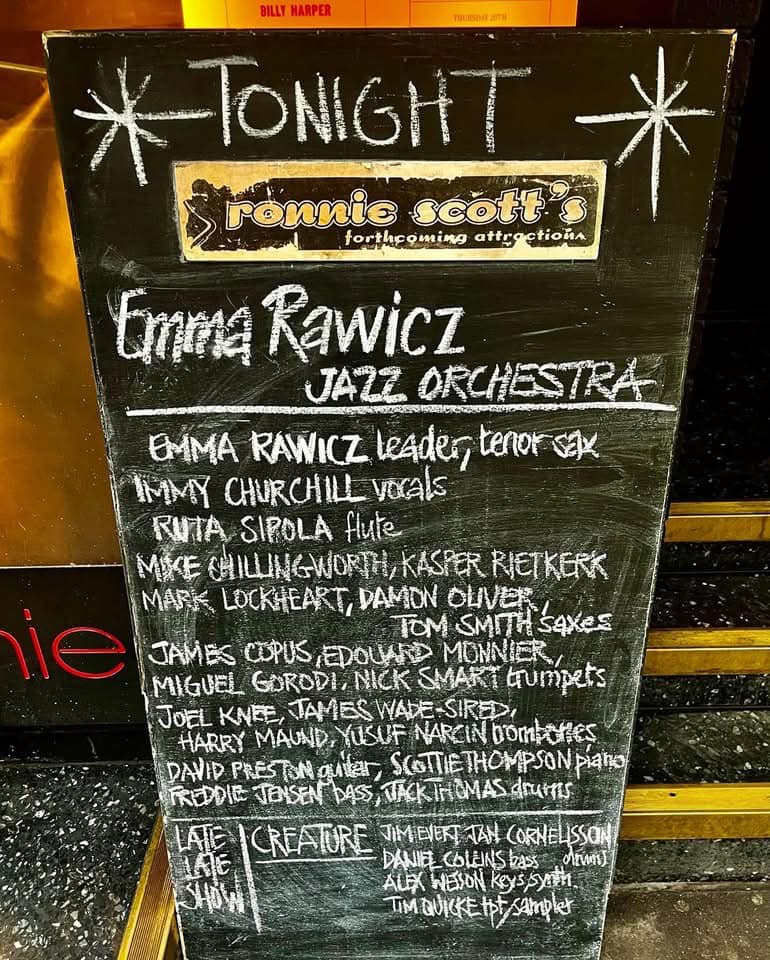 BILLY HARPER
THURSDAY 20TH
TONIGHT
ronnie scott's
forthcoming attractions
Emma Rawicz
JAZZ ORCHESTRA
EMMA RAWICZ leader, tenor sax
IMMY CHURCHILL vocals
RUTA SIPOLA flute
MIKE CHILLINGWORTH, KASPER RIETKERK
MARK LOCKHEART, DAMON OLIVER,
TOM SMITH saxes
JAMES COPUS, EDOUARD MONNIER,
MIGUEL GORODI, NICK SMART trumpets
JOEL KNEE, JAMES WADE-SIRED,
HARRY MAUND, YUSUF NARCIN trombones
DAVID PRESTON guitar, SCOTTIE THOMPSON piano
FREDDIE JENSEN bass, JACK THOMAS drums
nie
LATE LATE SHOW
CREATURE
JIM EVERT JAN CORNELISSON
DANIEL COLLINS bass drums
ALEX WESON keys/synth
TIM QUICKE tpt/sampler